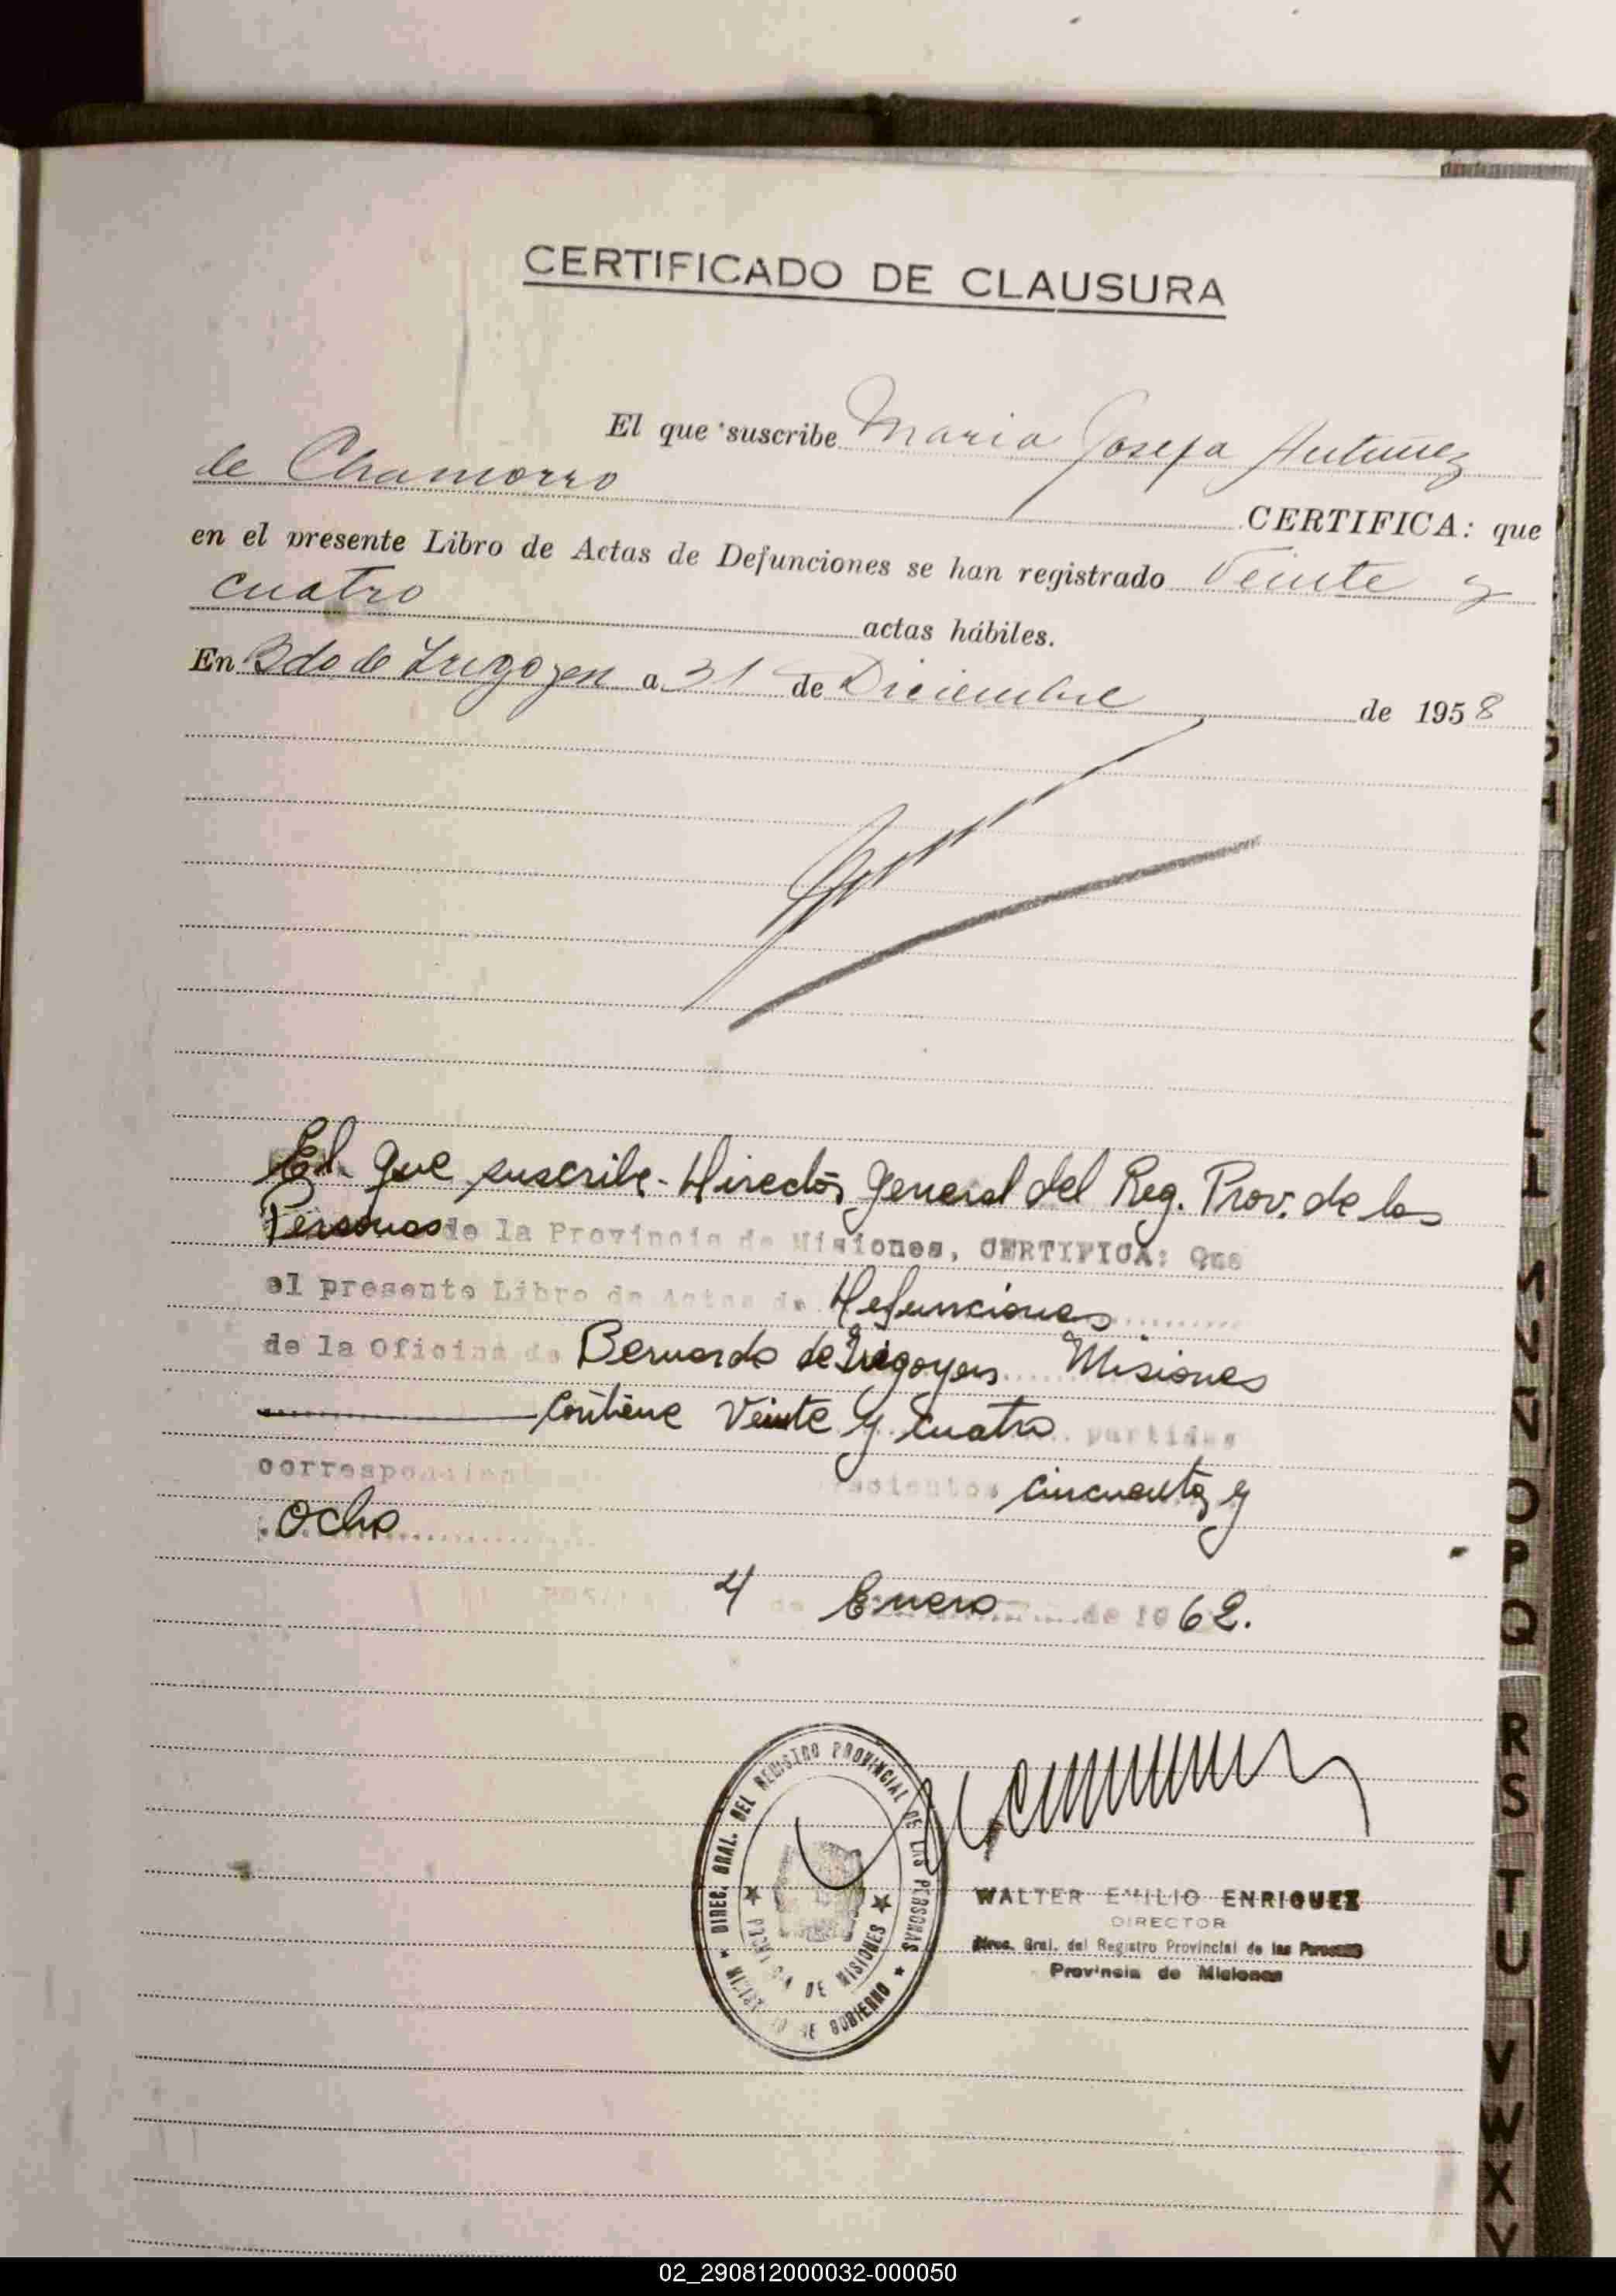 CERTIFICADO DE CLAUSURA
El que suscribe Maria Josefa Antunez
de Chamorro CERTIFICA: que
en el presente Libro de Actas de Defunciones se han registrado Veinte y
cuatro actas hábiles.
En Bdo de Irigoyen a 31 de Diciembre de 1958
El que suscribe - Director General del Reg. Prov. de las
Personas de la Provincia de Misiones, CERTIFICA: Que
el presente Libro de Actas de Defunciones
de la Oficina de Bernardo de Irigoyen Misiones
contiene Veinte y cuatro partidas
cincuenta y
Ocho
4 de Enero de 1962.
DIREC. GRAL. DEL REGISTRO PROVINCIAL DE LAS PERSONAS
DE GOBIERNO
PROVINCIA DE MISIONES
WALTER EMILIO ENRIQUEZ
DIRECTOR
Direc. Gral. del Registro Provincial de las Personas
Provincia de Misiones
O
P
Q
R
S
T
U
V
W
X
Y
02_290812000032-000050